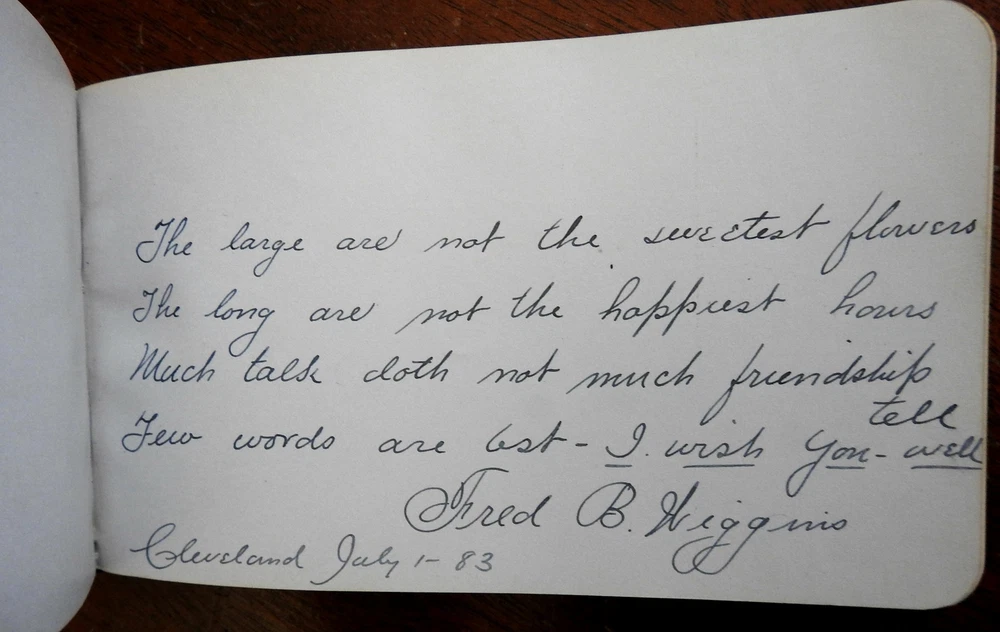 The large are not the sweetest flowers
The long are not the happiest hours
Much talk doth not much friendship
tell
Few words are best - I wish you - well
Fred B. Wiggins
Cleveland July 1- 83